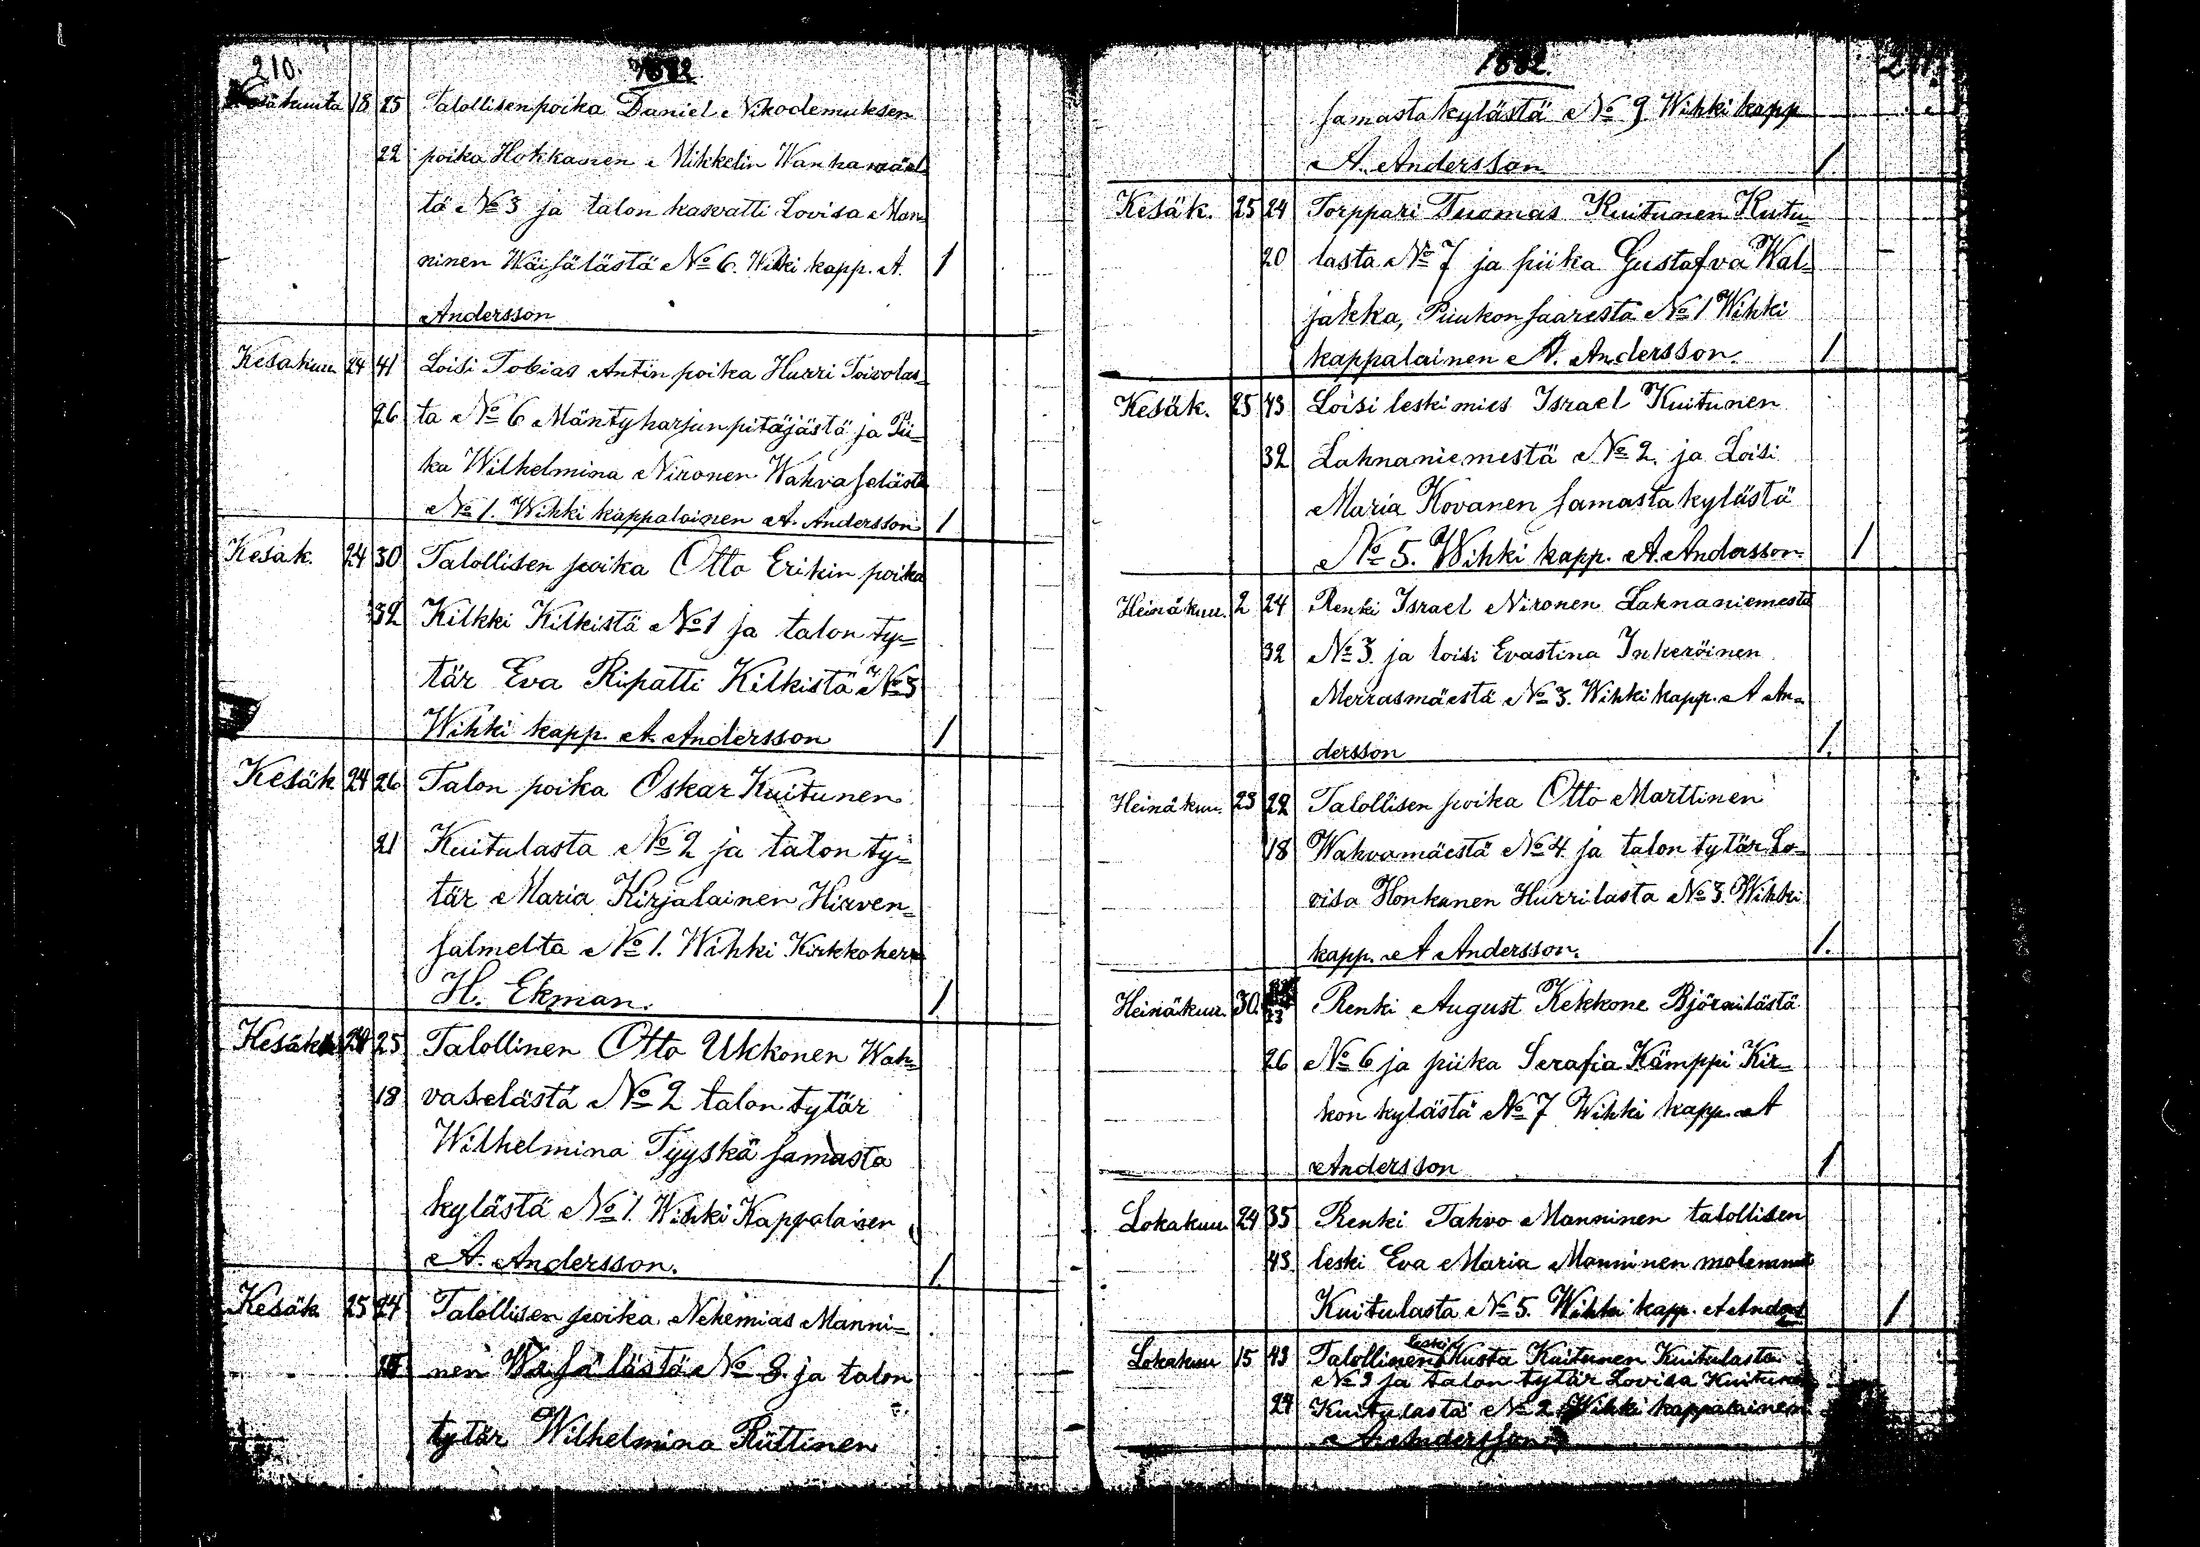 210.
1882.
Kesäkuuta 18 25 Talollisen poika Daniel Nikodemuksen
22 poika Hokkanen Mikkelin Wanhamäel-
tä No 3 ja talon kasvatti Lovisa Man-
ninen Wäisälästä No 6. Wihki kapp. A. 1
Andersson
Kesäkuu 24 41 Loisi Tobias Antin poika Hurri Toivolas-
26 ta No 6 Mäntyharjun pitäjästä ja Pii-
ka Wilhelmina Nironen Wahvaselästä
No 1. Wihki kappalainen A. Andersson 1
Kesäk. 24 30 Talollisen poika Otto Erikin poika
32 Kilkki Kilkistä No 1 ja talon ty-
tär Eva Ripatti Kilkistä No 3
Wihki kapp. A. Andersson 1
Kesäk 24 26 Talon poika Oskar Kuitunen
21 Kuitulasta No 2 ja talon ty-
tär Maria Kirjalainen Hirven-
salmelta No 1. Wihki Kirkkoherra
H. Ekman. 1
Kesäk 24 25 Talollinen Otto Ukkonen Wah-
18 vaselästä No 2 talon tytär
Wilhelmina Tyyskä samasta
kylästä No 1. Wihki Kappalainen
A. Andersson. 1.
Kesäk 25 24 Talollisen poika Nehemias Manni-
nen Wäisälästä No 8. ja talon
tytär Wilhelmina Riittinen
1882.
211.
samasta kylästä No 9 Wihki kapp
A. Andersson 1
Kesäk. 25 24 Torppari Tuomas Kuitunen Kuitu-
20 lasta No 7 ja piika Gustafva Wal-
jakka, Puukonsaaresta No 1 Wihki
kappalainen A. Andersson. 1
Kesäk. 25 43 Loisi leskimies Israel Kuitunen
32 Lahnaniemestä No 2. ja Loisi
Maria Kovanen samasta kylästä
No 5. Wihki kapp. A. Andersson. 1
Heinäkuu. 2 24 Renki Israel Nironen Lahnaniemestä
32 No 3. ja loisi Evastina Inkeröinen
Merrasmäestä No 3. Wihki kapp. A An-
dersson 1.
Heinäkuu. 23 22 Talollisen poika Otto Marttinen
18 Wahvamäestä No 4 ja talon tytär Lo-
visa Honkanen Hurrilasta No 3. Wihki
kapp. A Andersson. 1.
Heinäkuu. 30. 23 Renki August Kekkone Björnilästä
26 No 6 ja piika Serafia Kämppi Kir-
kon kylästä No 7 Wihki kapp. A
Andersson 1
Lokakuu 24 35 Renki Tahvo Manninen talollisen
43. leski Eva Maria Manninen molemmat
Kuitulasta No 5. Wihki kapp. A Anders 1
Lokakuu 15 43 Talollinen leski Kusta Kuitunen Kuitulasta
No 3 ja talon tytär Lovisa Kuitunen
24 Kuitulasta No 2 Wihki kappalainen
A. Andersson